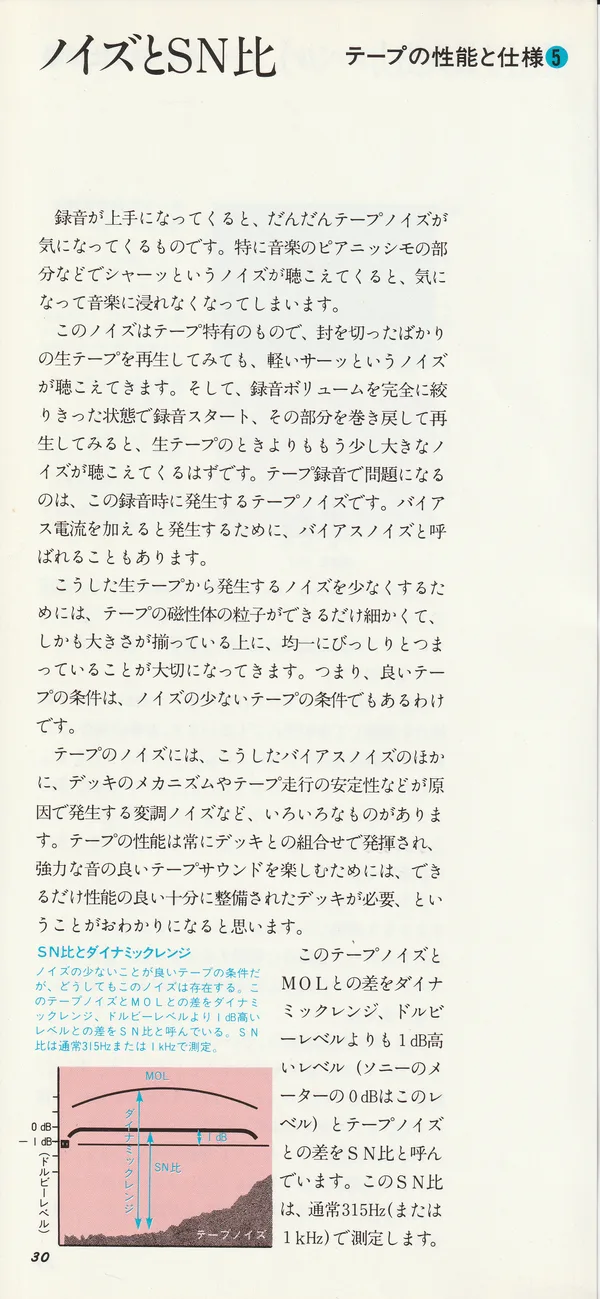 ノイズとSN比
テープの性能と仕様5
録音が上手になってくると、だんだんテープノイズが
気になってくるものです。特に音楽のピアニッシモの部
分などでシャーッというノイズが聴こえてくると、気に
なって音楽に浸れなくなってしまいます。
このノイズはテープ特有のもので、封を切ったばかり
の生テープを再生してみても、軽いサーッというノイズ
が聴こえてきます。そして、録音ボリュームを完全に絞
りきった状態で録音スタート、その部分を巻き戻して再
生してみると、生テープのときよりももう少し大きなノ
イズが聴こえてくるはずです。テープ録音で問題になる
のは、この録音時に発生するテープノイズです。バイア
ス電流を加えると発生するために、バイアスノイズと呼
ばれることもあります。
こうした生テープから発生するノイズを少なくするた
めには、テープの磁性体の粒子ができるだけ細かくて、
しかも大きさが揃っている上に、均一にびっしりとつま
っていることが大切になってきます。つまり、良いテー
プの条件は、ノイズの少ないテープの条件でもあるわけ
です。
テープのノイズには、こうしたバイアスノイズのほか
に、デッキのメカニズムやテープ走行の安定性などが原
因で発生する変調ノイズなど、いろいろなものがありま
す。テープの性能は常にデッキとの組合せで発揮され、
強力な音の良いテープサウンドを楽しむためには、でき
るだけ性能の良い十分に整備されたデッキが必要、とい
うことがおわかりになると思います。
このテープノイズと
MOLとの差をダイナ
ミックレンジ、ドルビ
ーレベルよりも1dB高
いレベル（ソニーのメ
ーターの0dBはこのレ
ベル）とテープノイズ
との差をSN比と呼ん
でいます。このSN比
は、通常315Hz(または
1kHz)で測定します。
SN比とダイナミックレンジ
ノイズの少ないことが良いテープの条件だ
が、どうしてもこのノイズは存在する。こ
のテープノイズとMOLとの差をダイナミ
ックレンジ、ドルビーレベルより1dB高い
レベルとの差をSN比と呼んでいる。SN
比は通常315Hzまたは1kHzで測定。
MOL
0dB
−1dB
（ドルビーレベル）
ダイナミックレンジ
1dB
SN比
テープノイズ
30